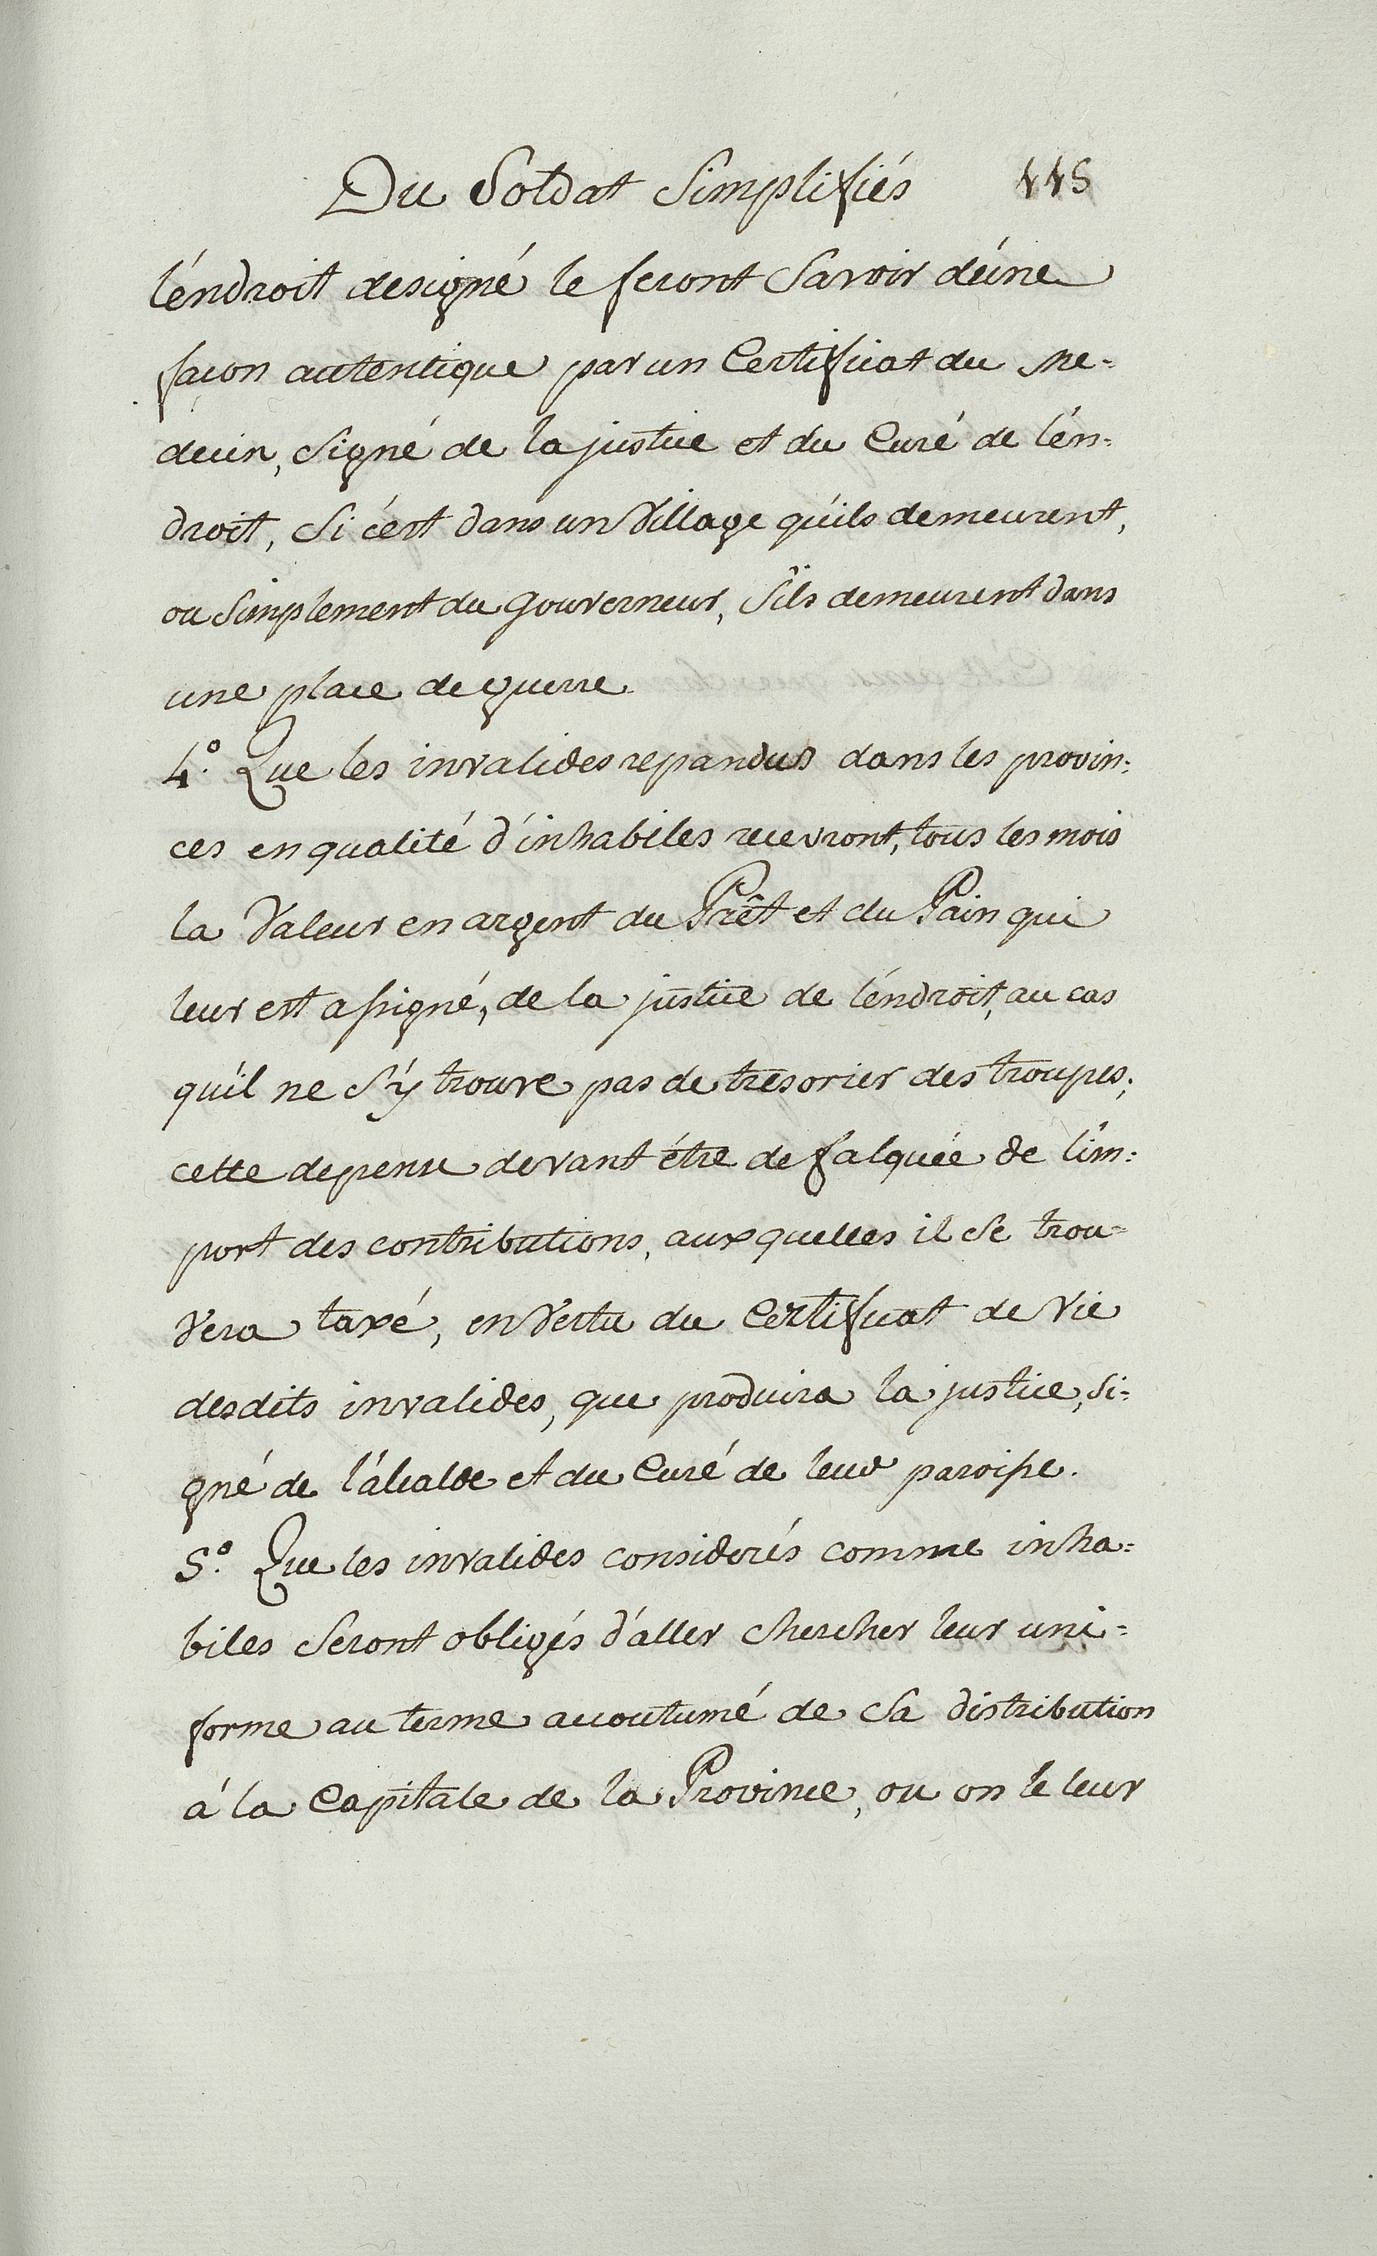 Du Soldat Simplifiés 445
l'éndroit designé le feront Savoir d'úne
façon autentique par un Certificat du Me-
decin, Signé de la justice et du Curé de l'én-
droit, Si c'ést dans un Village qu'ils demeurent,
ou Simplement du Gouverneur, S'ils demeurent dans
une place de guerre.
4.º Que les invalides repandus dans les provin-
ces en qualité d'inhabiles recevront, tous les mois
la Valeur en argent du Prêt et du Pain qui
leur est assigné, de la justice de l'éndroit, au cas
qu'il ne S'y trouve pas de tresorier des troupes;
cette depense devant étre defalquée de l'im-
port des contributions, auxquelles il Se trou-
vera taxé, en Vertu du Certificat de Vie
desdits invalides, que produira la justice, Si-
gné de l'álcalde et du Curé de leur paroisse.
5.º Que les invalides considerés comme inha-
biles Seront obligés d'aller chercher leur uni-
forme au terme accoutumé de Sa distribution
á la Capitale de la Province, ou on le leur